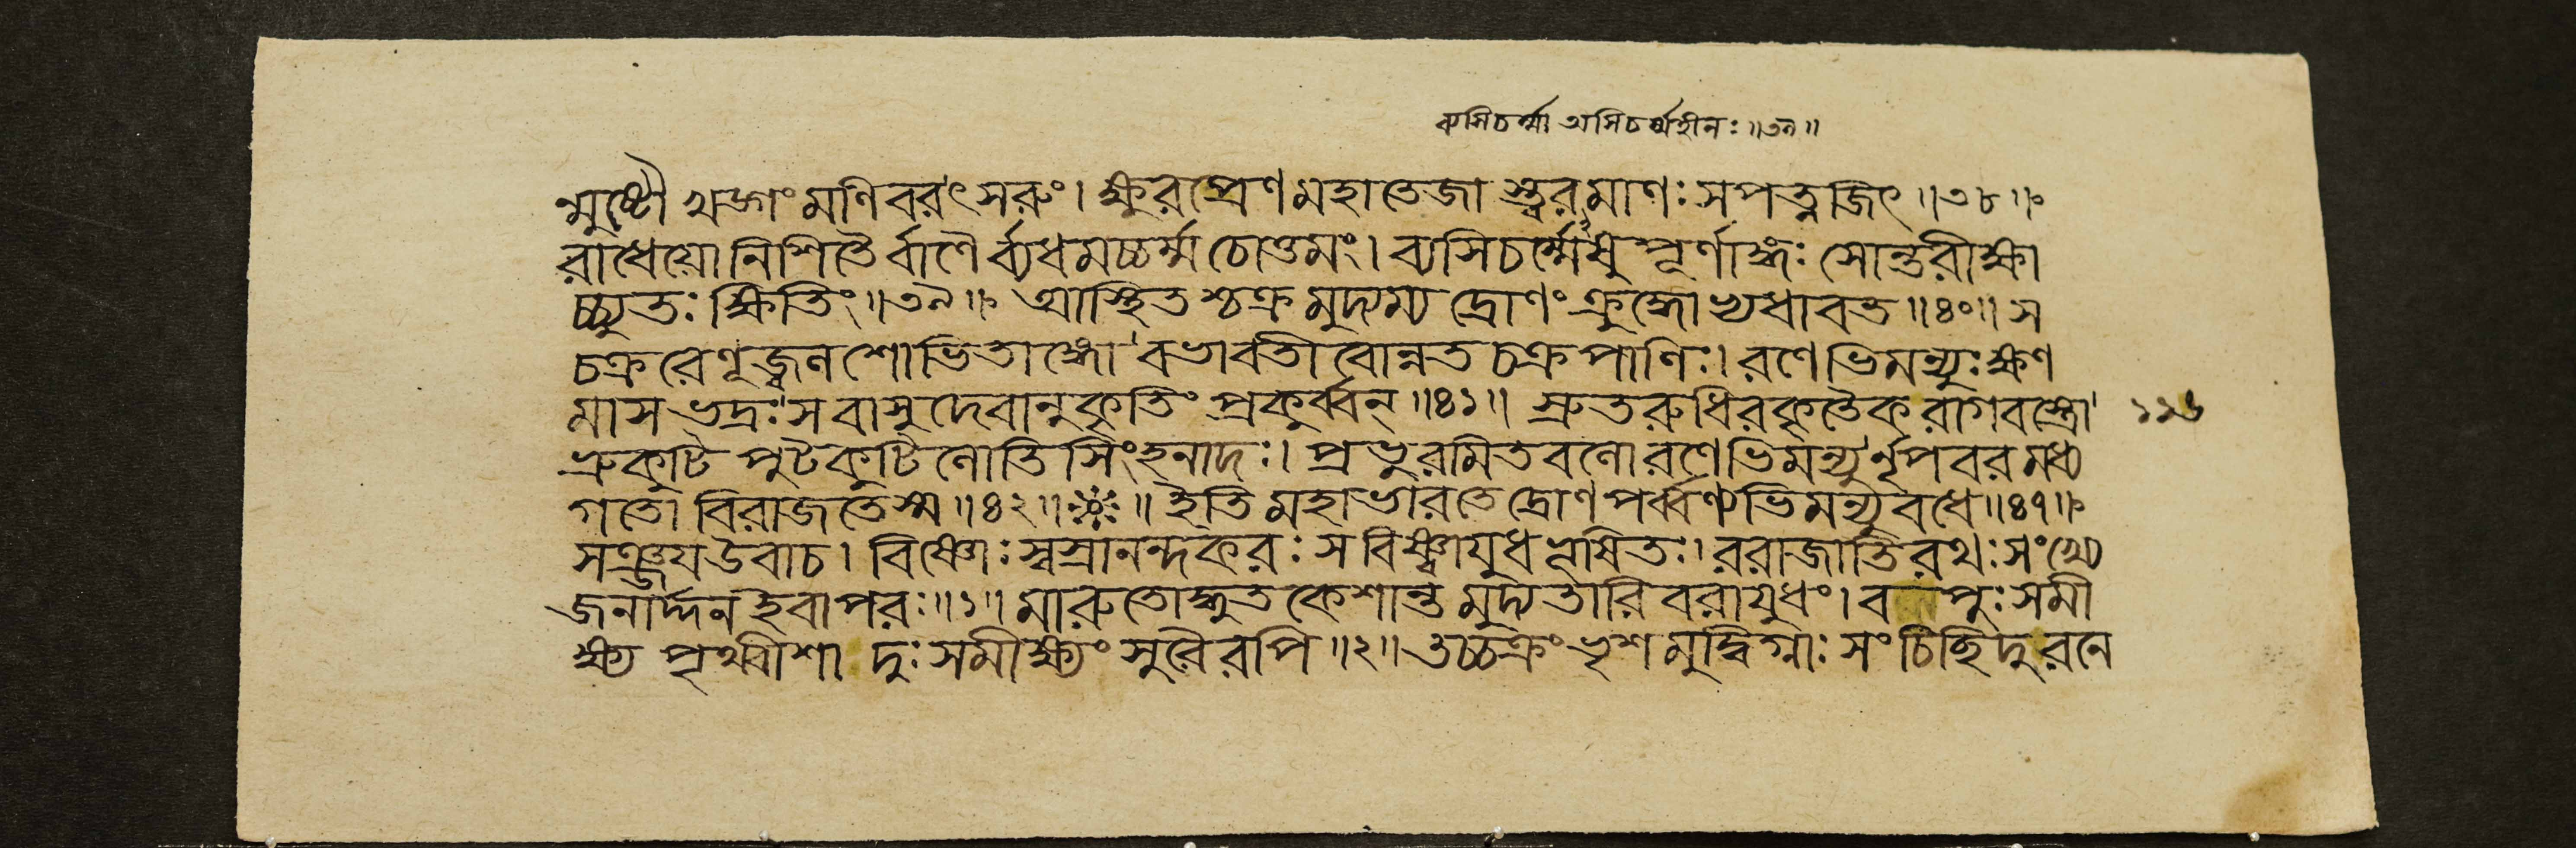 ব্যসিচর্ম্মা অসিচর্ম্মহীনঃ॥৩৯॥
ন্মুষ্টৌ খড্গং মণিবরৎসরুং। ক্ষুরপ্রেণ মহাতেজা স্ত্বরমাণঃ সপত্নজিৎ॥৩৮॥
রাধেয়ো নিশিতৈর্বাণৈর্ব্যধমচ্চর্ম্ম চোত্তমং। ব্যসিচর্ম্মেষু পূর্ণাঙ্গঃ সোন্তরীক্ষা
চ্চ্যুতঃ ক্ষিতিং॥৩৯॥ আস্থিতশ্চক্রমুদ্যম্য দ্রোণং ক্রুদ্ধোভ্যধাবত॥৪০॥ স
চক্ররেণূজ্জ্বলশোভিতাঙ্গো বভাবতীবোন্নতচক্রপাণিঃ। রণেভিমন্যুঃ ক্ষণ
মাস ভদ্রঃ স বাসুদেবানুকৃতিং প্রকুর্ব্বন্॥৪১॥ স্রুতরুধিরকৃতৈকরাগবস্ত্রো
১১৬
ভ্রুকুটিপুটকুটিলোতিসিংহনাদঃ। প্রভুরমিতবলোরণেভিমন্যুর্নৃপবরমধ্য
গতো বিরাজতেস্ম॥৪২॥ ॥ ইতি মহাভারতে দ্রোণপর্ব্বণ্যভিমন্যুবধে॥৪৭॥
সঞ্জয় উবাচ। বিষ্ণোঃ স্বস্রানন্দকরঃ স বিষ্ণ্বায়ুধভূষিতঃ। ররাজাতিরথঃ সংখ্যে
জনার্দ্দন ইবাপরঃ॥১॥ মারুতোদ্ধুতকেশান্তমুদ্যতারিবরায়ুধং। বপুঃ সমী
ক্ষ্য পৃথ্বীশা দুঃসমীক্ষ্যং সুরৈরপি॥২॥ তচ্চক্রং ভৃশমুদ্বিগ্নাঃ সংচিচ্ছিদুরনে